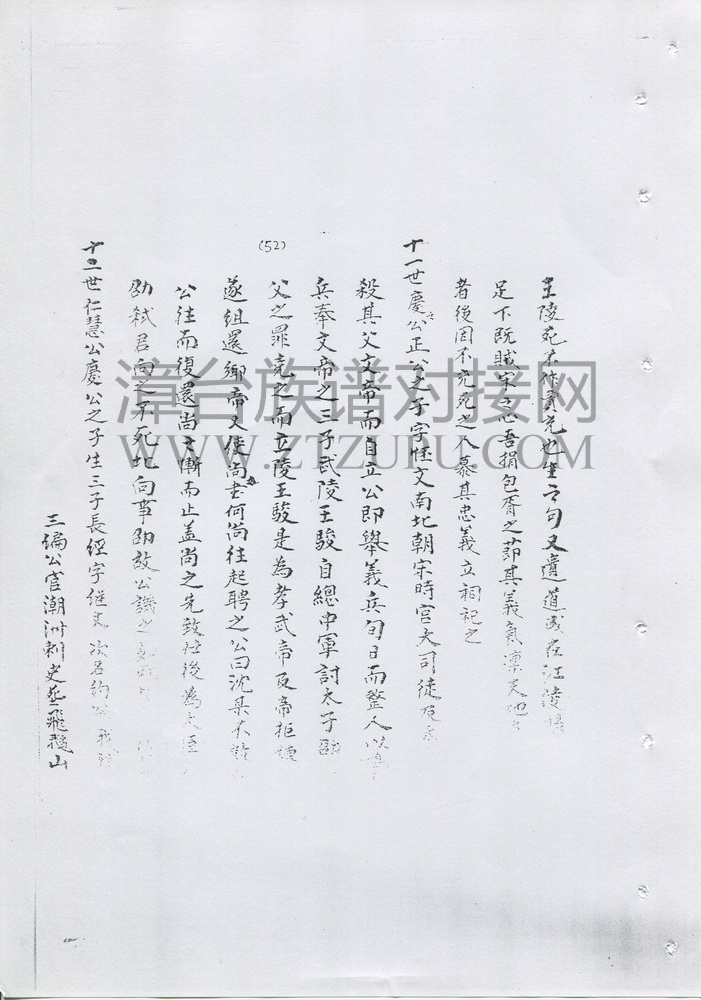 王陵死不作賈充也生之句又遺道成在江陵
足下既賊宋之心吾捐包胥之節其義氣凛天地
者後因不充死之人慕其忠義立祠祀之
十一世慶公正公之子字怪文南北朝宋時官大司徒及
殺其父文帝而自立公即舉義兵旬日而整人以
兵奉文帝之三子武陵王駿自總中軍討太子劭
(52)
父之罪竞之而立陵王駿是為孝武帝及帝拒
遂组還鄉帝又使尚書何尚往起聘之公曰沈果
公往而復還尚之慚而止盖尚之先致仕後為
劭弒君向之不死北向事劭故公譏之
十二世仁慧公慶公之子生三子長經字继 次名約公
三編公官潮洲刺史 飛 山
漳台族谱对接网
WWW.ZTZUPU.COM